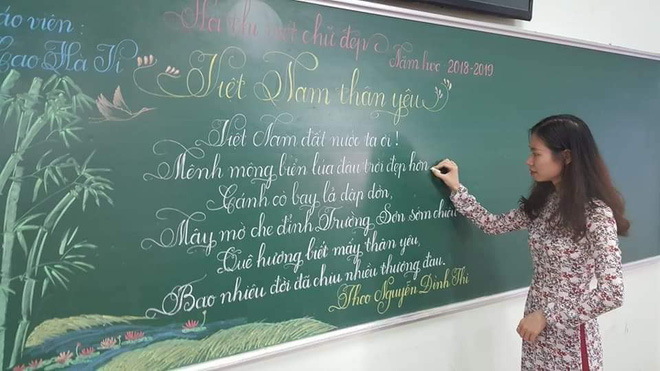 áo viên :
thi viết chữ đẹp
Năm học 2018-2019
Việt Nam thân yêu
Việt Nam đất nước ta ơi !
Mênh mông biển lúa đâu trời đẹp hơn
Cánh cò bay lả dập dờn,
Mây mờ che đỉnh Trường Sơn sớm chiều
Quê hương biết mấy thân yêu,
Bao nhiêu đời đã chịu nhiều thương đau.
Theo Nguyễn Đình Thi